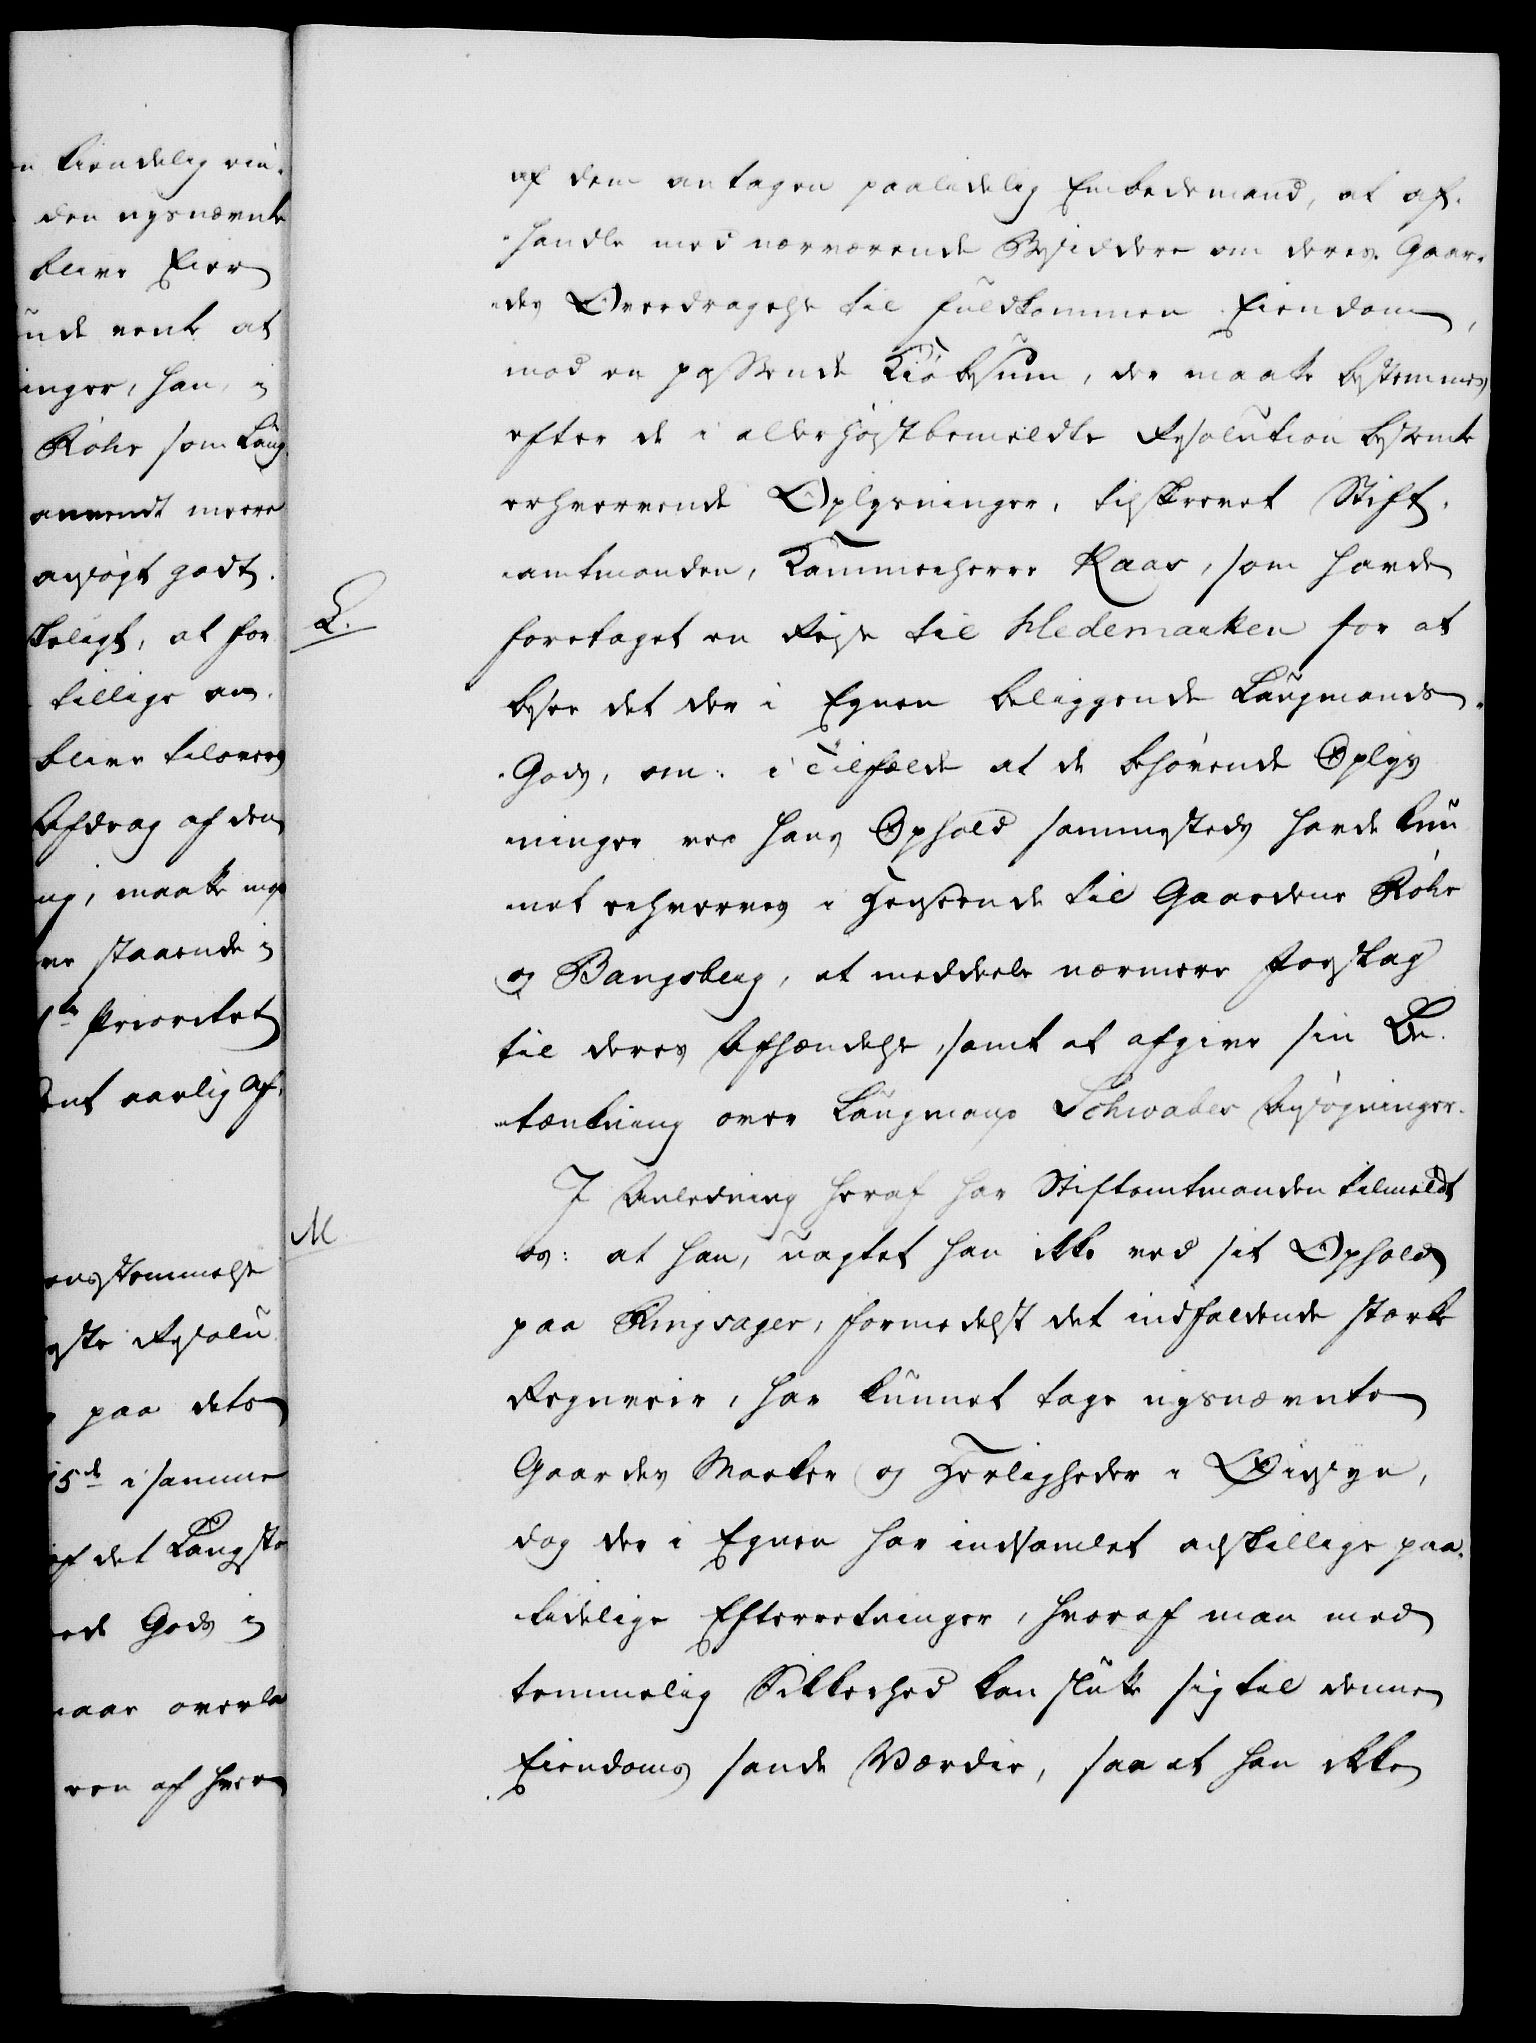 n kiendelig ein-
den nysnævnte
blive Eier
unde vente at
inger, han, i
Røhr som Laug
anvendt meere
ansøgt godt-
keligt, at for
tillige an-
blive tilovers
Afdrag af den
ng, maatte
ve staaende i
1te Prioritet
ent aarlig Af-
ensstemmelse
ste Resolu
paa dets
15de i samme
af det Laugsto
ede Gods i
naar overla
ren af hver
af dem antagen paalidelig Embedsmand, at af-
handle med nærværende Besiddere om deres Gaar-
des Overdragelse til fuldkommen Eiendom,
mod en passende Kiøbesum, der maatte bestemmes
efter de i allerhøistbemeldte Resolution bestemte
erhvervende Oplysninger, tilskrevet Stift-
amtmanden, Kammerherre Kaas, som havde
L.
foretaget en Reise til Hedemarken for at
besee det der i Egnen beliggende Laugmands-
Gods, om, i Tilfælde at de behøvende Oplys
ninger ved hans Ophold sammesteds havde kun
net erhverves i Henseende til Gaardene Røhr
og Bangsberg, at meddeele nærmere Forslag
til deres Afhændelse, samt at afgive sin Be-
tænkning over Laugmand Schwabes Ansøgninger.
I Anledning heraf har Stiftamtmanden tilmeldt
M
os: at han, uagtet han ikke ved sit Ophold
paa Ringsager, formedelst det indfaldende stærke
Regnveir, har kunnet tage nysnævnte
Gaardes Marker og Herligheder i Øiesyn,
dog der i Egnen har indsamlet adskillige paa-
lidelige Efterretninger, hvoraf man med
temmelig Sikkerhed kan slutte sig til denne
Eiendoms sande Værdie, saa at han ikke